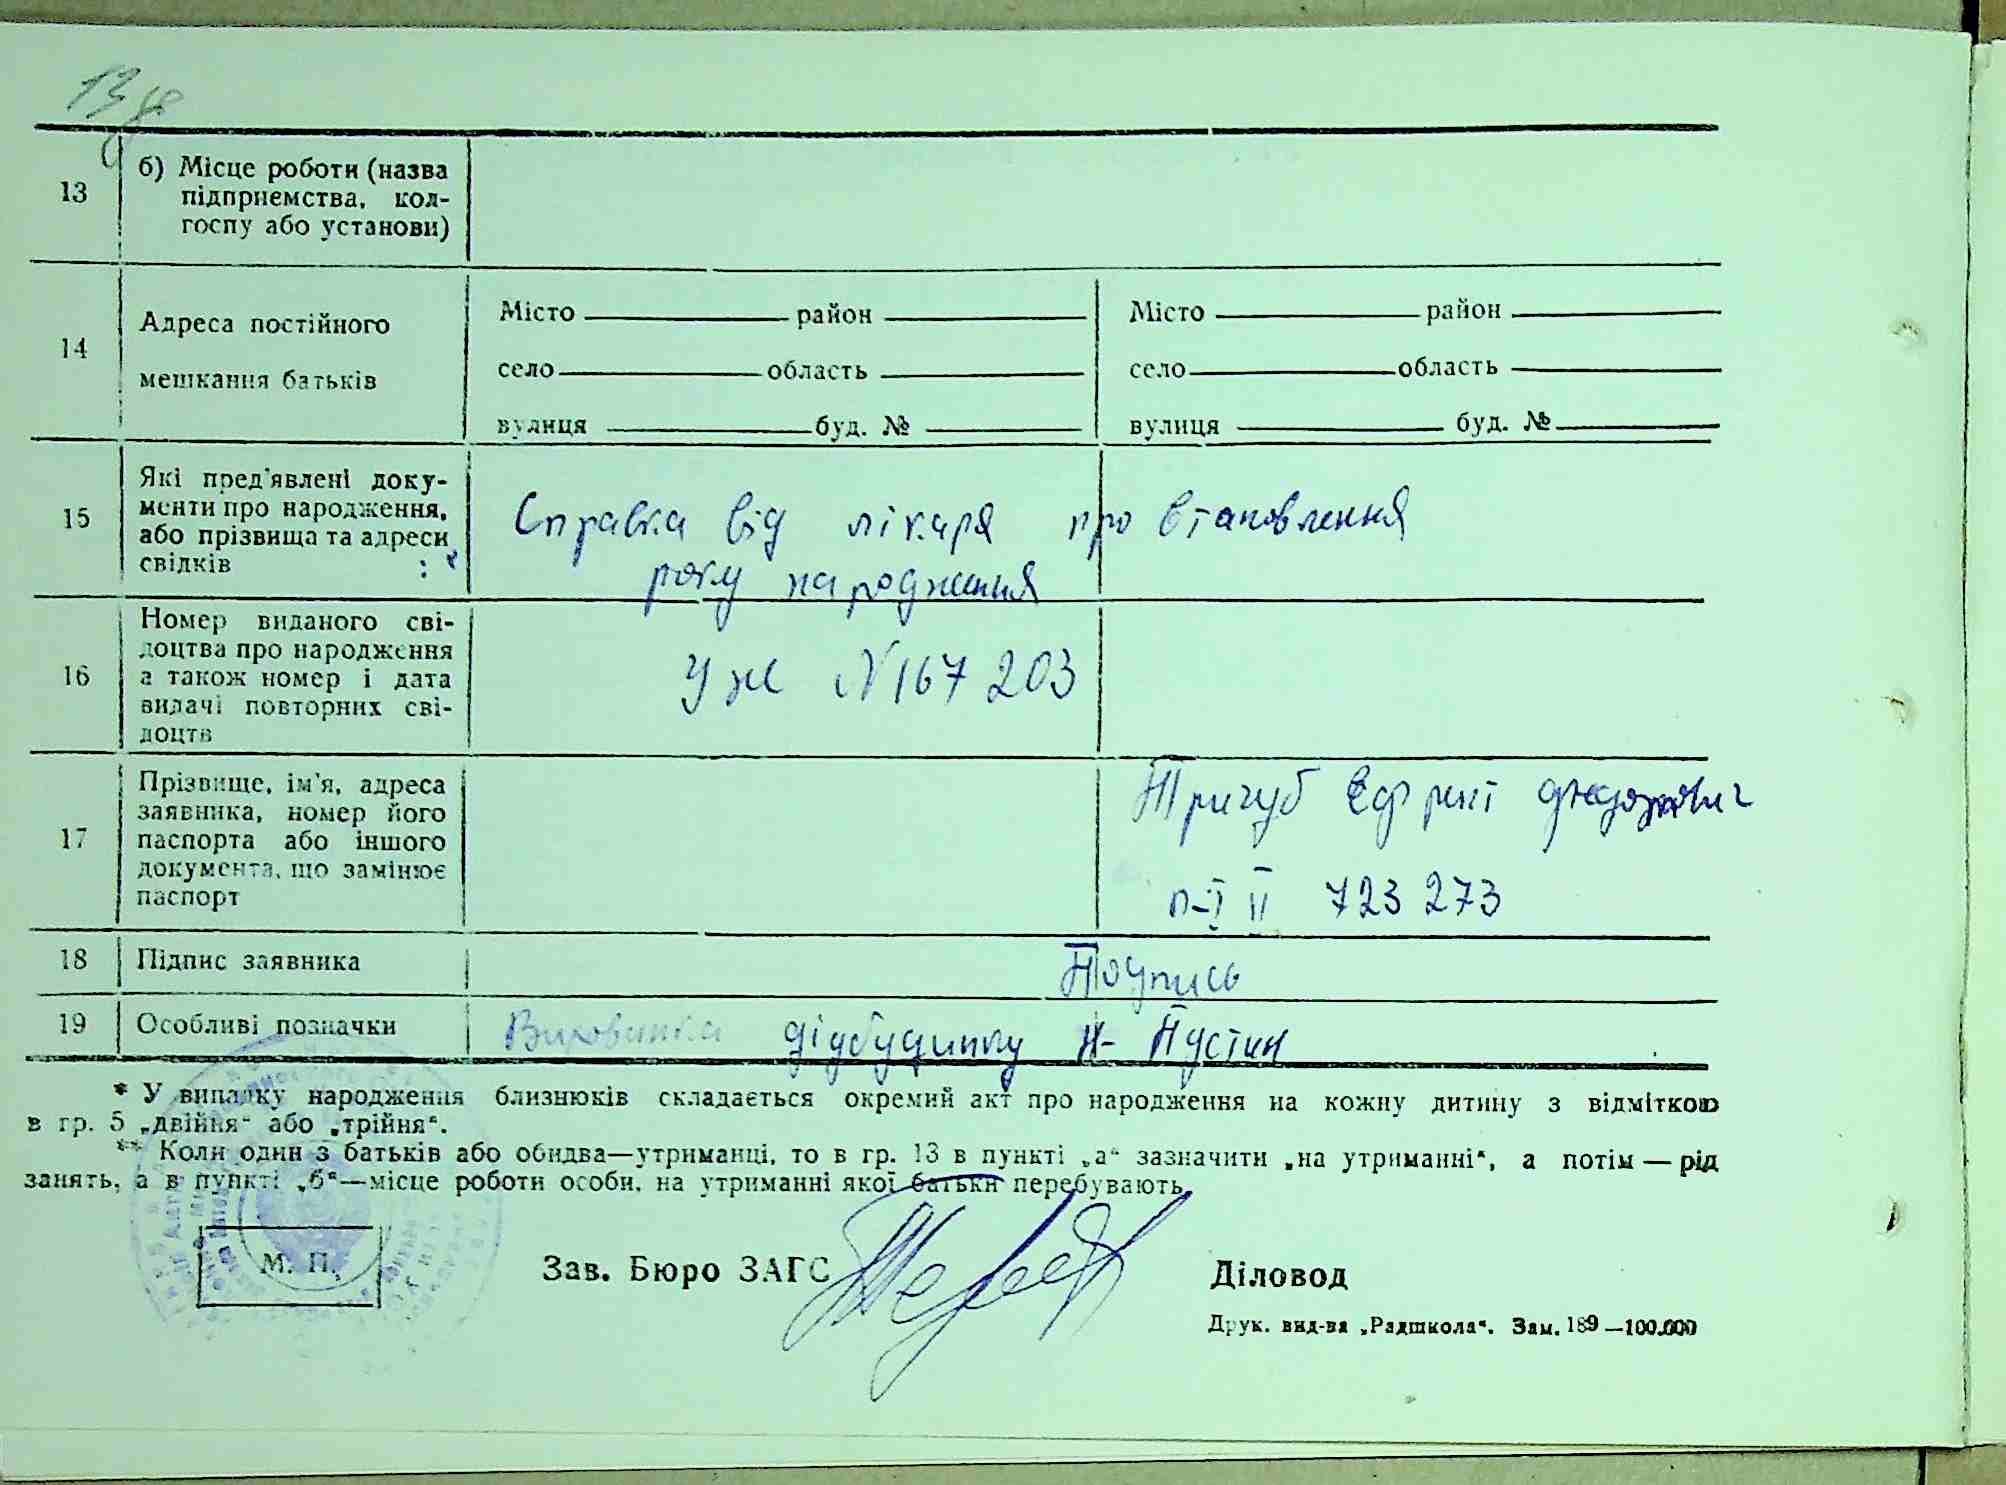 13 б) Місце роботи (назва
підприємства, кол-
госпу або установи)
14 Адреса постійного
мешкання батьків
Місто район
село область
вулиця буд. №
Місто район
село область
вулиця буд. №
15 Які пред'явлені доку-
менти про народження,
або прізвища та адреси
свідків
Справка від лікаря про встановлення
року народження
16 Номер виданого сві-
доцтва про народження
а також номер і дата
видачі повторних сві-
доцтв
У ж N 167 203
17 Прізвище, ім'я, адреса
заявника, номер його
паспорта або іншого
документа, що замінює
паспорт
Тригуб
723 273
18 Підпис заявника
Подпись
19 Особливі позначки
Вихованка дідбудинку Н- Пустин
* У випадку народження близнюків складається окремий акт про народження на кожну дитину з відміткою
в гр. 5 „двійня“ або „трійня“.
** Коли один з батьків або обидва—утриманці, то в гр. 13 в пункті „а“ зазначити „на утриманні“, а потім — рід
занять, а в пункті „б“—місце роботи особи, на утриманні якої батьки перебувають.
М. П.
Зав. Бюро ЗАГС
Діловод
Друк. вид-ва „Радшкола“. Зам. 189 —100.000